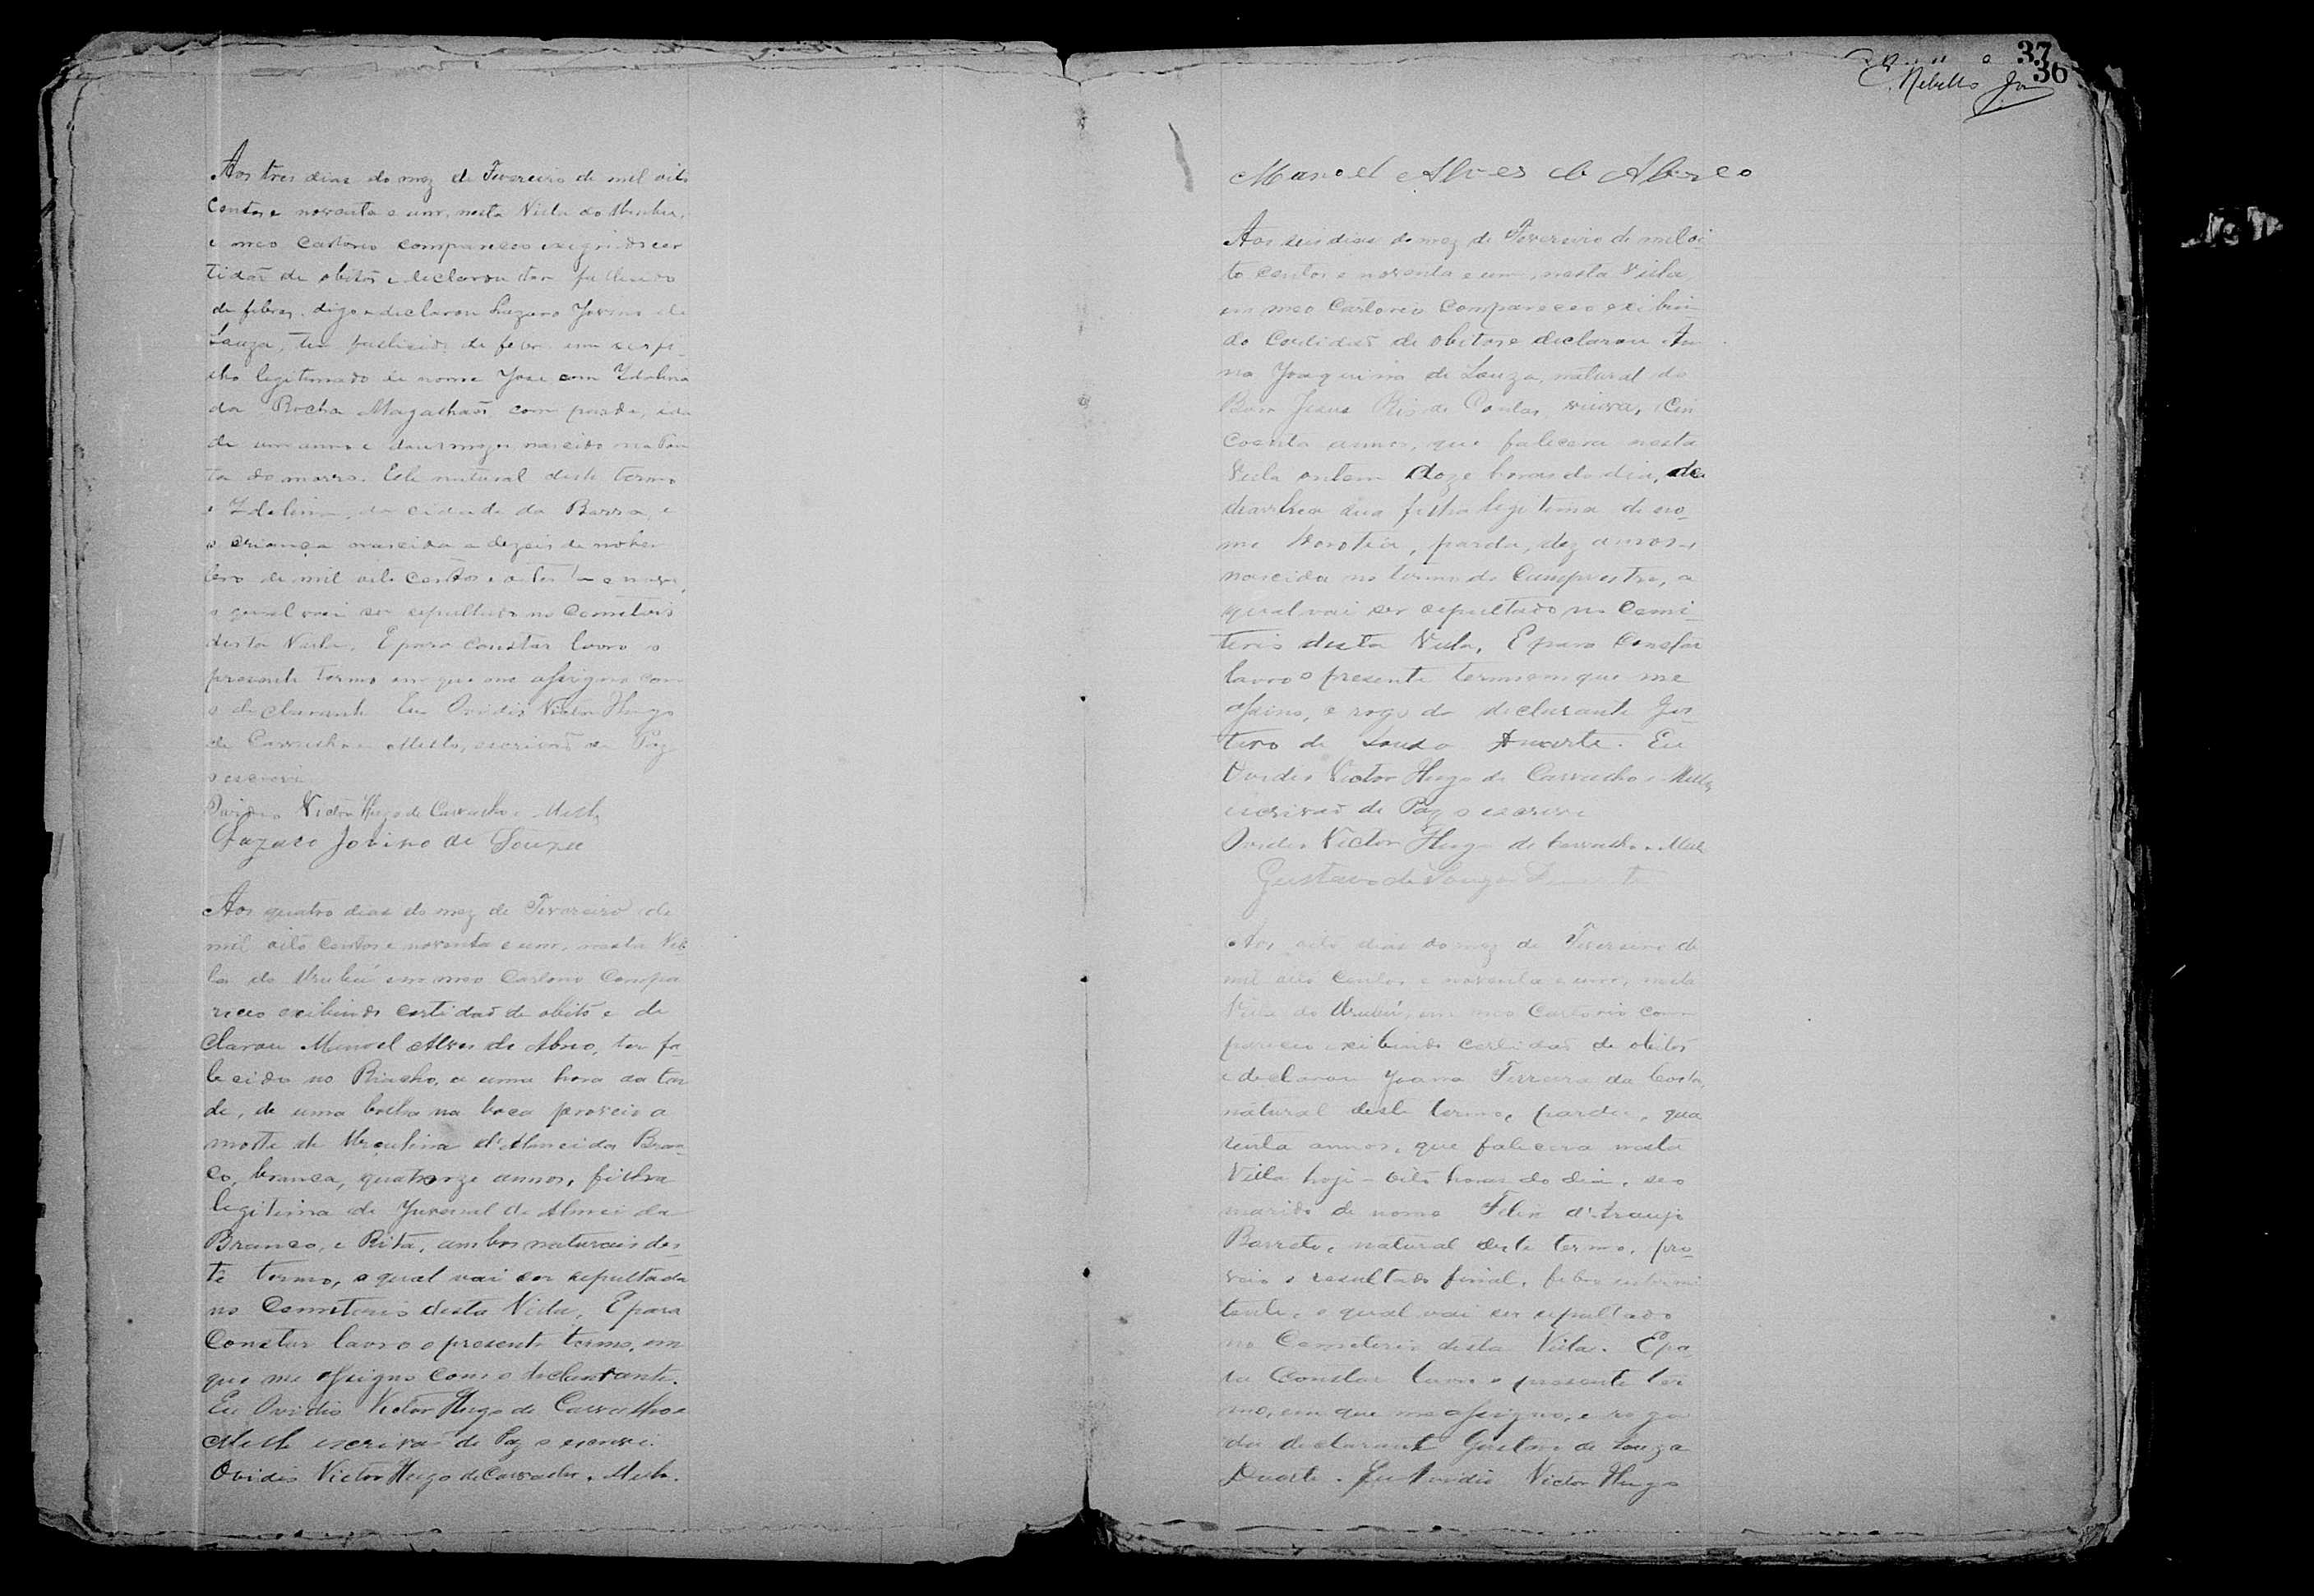 Aos tres dias do mez de Fevereiro de mil oito
centos e noventa e um, nesta Villa do Urubu,
e meo Cartorio compareceo exegindo cer
tidaõ de obitos e declarou ter fallecido
de febres, digo e declarou Lazaro Jovino de
Souza, ter fallecido de febre um seo fi
lho legitimado de nome José com Idalina
da Rocha Magalhaõs, com parda, ida
de um anno e dous mezes nascido na Pon
ta do morro. Este natural deste termo
e Idalina, da cidade da Barra, e
a criança nascida a dezeis de novem
bro de mil oito centos e oitenta e nove,
o qual vai ser sepultado no Cemeterio
desta Villa. E para constar lavro o
presente termo em que me assigno com
o declarante. Eu Ovidio Victor Hugo
de Carvalho e Mello, escrivaõ de Paz
o escrevi
Ovidio Victor Hugo de Carvalho e Mello
Lazaro Jovino de Souza
Aos quatro dias do mez de Fevereiro de
mil oito centos e noventa e um, nesta Vil
la do Urubú em meo Cartorio Compa
receo exibindo certidaõ de obito e de
clarou Manoel Alves de Abreo, ter fa
lecido no Riacho, a uma hora da tar
de, de uma bolha na boca proveio a
morte de Urculina d'Almeida Bran
co, branca, quatorze annos, filha
legitima de Juvenal de Almeida
Branco, e Rita, ambos naturais des
te termo, a qual vai ser sepultada
no Cemeterio desta Villa. E para
Constar lavro o presente termo, em
que me assigno com o declarante.
Eu Ovidio Victor Hugo de Carvalho e
Mello escrivaõ de Paz o escrevi.
Ovidio Victor Hugo de Carvalho e Mello.
37
36
C. Rebello Jor
Manoel Alves de Abreo
Aos seis dias do mez de Fevereiro de mil oi
to centos e noventa e um, nesta Villa
em meo Cartorio compareceo exibin
do Certidaõ de obitos e declarou An
na Joaquina de Souza, natural do
Bom Jesus Rio de Contas, viuva, Cin
coenta annos, que falecera nesta
Villa ontem doze horas do dia, de
diarrhea sua filha legitima de no
me Dorotia, parda, dez annos,
nascida no termo do Campestre, a
qual vai ser sepultado no Cemi
terio desta Villa, E para Constar
lavro o presente termo em que me
assino, e rogo da declarante Gus
tavo de Souza Duarte. Eu
Ovidio Victor Hugo de Carvalho e Mello
escrivaõ de Paz o escrevi
Ovidio Victor Hugo de Carvalho e Mello
Gustavo de Souza Duarte
Aos oito dias do mez de Fevereiro de
mil oito centos e noventa e um, nesta
Villa do Urubú, em meo Cartorio com
pareceo exibindo certidaõ de obitos
e declarou Joana Ferreira da Costa,
natural deste termo, parda, qua
renta annos, que falecera nesta
Villa hoje - oito horas do dia, seo
marido de nome Felix d'Araujo
Barreto, natural deste termo, pro
veio o resultado final, febre intermi
tente, o qual vai ser sepultado
no Cemeterio desta Villa. E pa
ra Constar lavro o presente ter
mo, em que me assigno, e rogo
da declarante Gustavo de Souza
Duarte. Eu Ovidio Victor Hugo